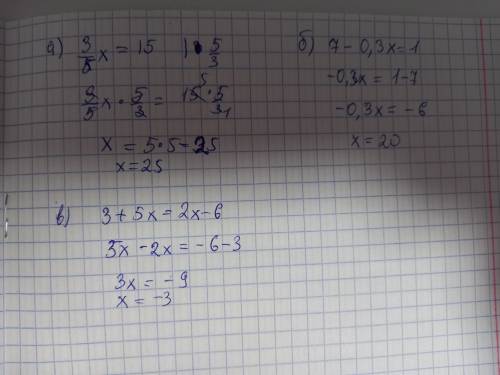 а) 3/5 x = 15 | · 5/3
3/5 x · 5/3 = 15 5 · 5/3 1
x = 5 · 5 = 25
x = 25
б) 7 - 0,3x = 1
-0,3x = 1-7
-0,3x = -6
x = 20
в) 3 + 5x = 2x - 6
5x - 2x = -6 - 3
3x = -9
x = -3